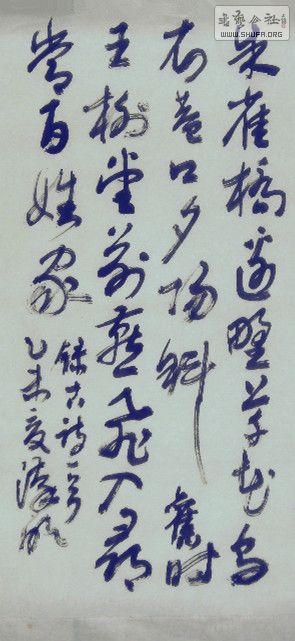 朱雀橋邊野草花烏
衣巷口夕陽斜舊時
王榭堂前燕飛入尋
常百姓家
錄古詩一首
乙未夏
公社
WWW.SHUFA.ORG